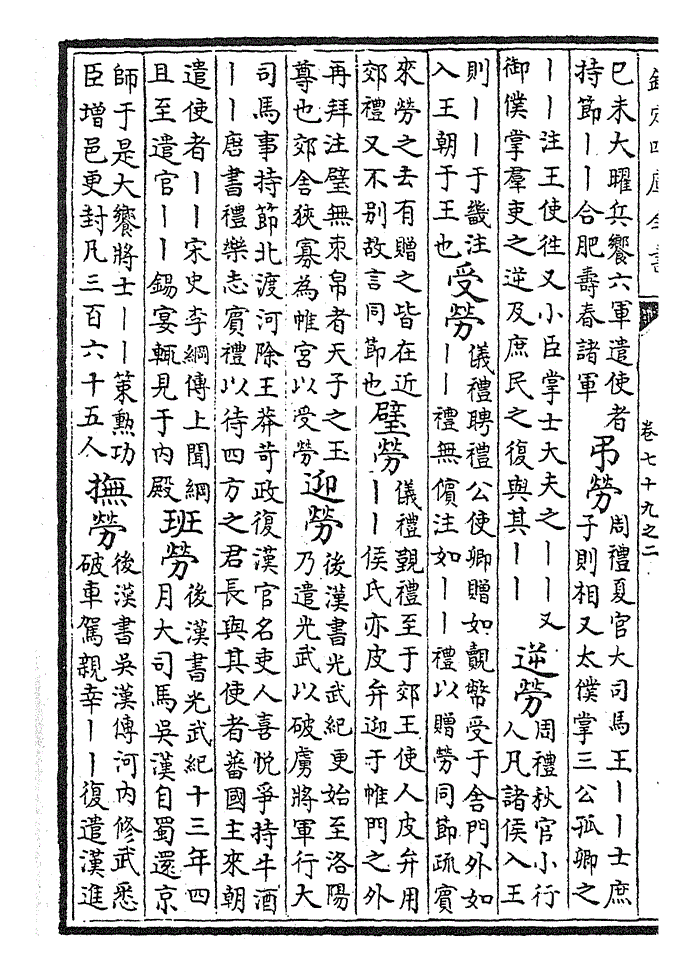 欽定四庫全書
卷七十九之二
巳未大曜兵饗六軍遣使者
持節——合肥壽春諸軍
弔勞
周禮夏官大司馬王——士庶
子則相又太僕掌三公孤卿之
——注王使往又小臣掌士大夫之——又
御僕掌羣吏之逆及庶民之復與其——
逆勞
周禮秋官小行
人凡諸侯入王
則——于畿注
入王朝于王也
受勞
儀禮聘禮公使卿贈如覿幣受于舍門外如
——禮無儐注如——禮以贈勞同節疏賓
來勞之去有贈之皆在近
郊禮又不别故言同節也
璧勞
儀禮覲禮至于郊王使人皮弁用
——侯氏亦皮弁迎于帷門之外
再拜注璧無束帛者天子之玉
尊也郊舍狹寡為帷宮以受勞
迎勞
後漢書光武紀更始至洛陽
乃遣光武以破虜將軍行大
司馬事持節北渡河除王莽苛政復漢官名吏人喜悅爭持牛酒
——唐書禮樂志賓禮以待四方之君長與其使者蕃國主來朝
遣使者——宋史李綱傳上聞綱
且至遣官——錫宴輒見于内殿
班勞
後漢書光武紀十三年四
月大司馬吳漢自蜀還京
師于是大饗將士——策勲功
臣增邑更封凡三百六十五人
撫勞
後漢書吳漢傳河内修武悉
破車駕親幸——復遣漢進